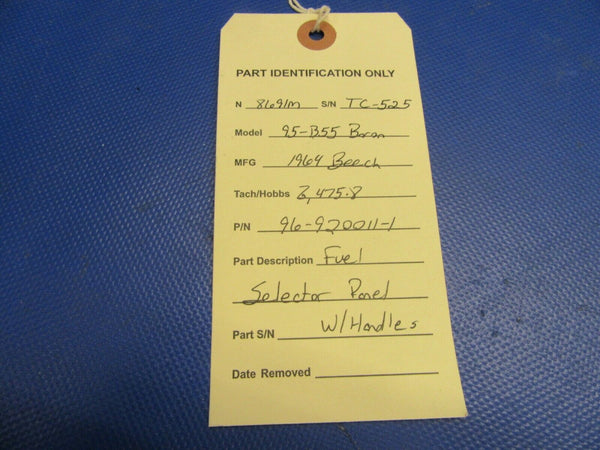 PART IDENTIFICATION ONLY
N 8691M S/N TC-525
Model 95-B55 Baron
MFG 1964 Beech
Tach/Hobbs 3,475.8
P/N 96-920011-1
Part Description Fuel
Selector Panel
Part S/N W/Handles
Date Removed